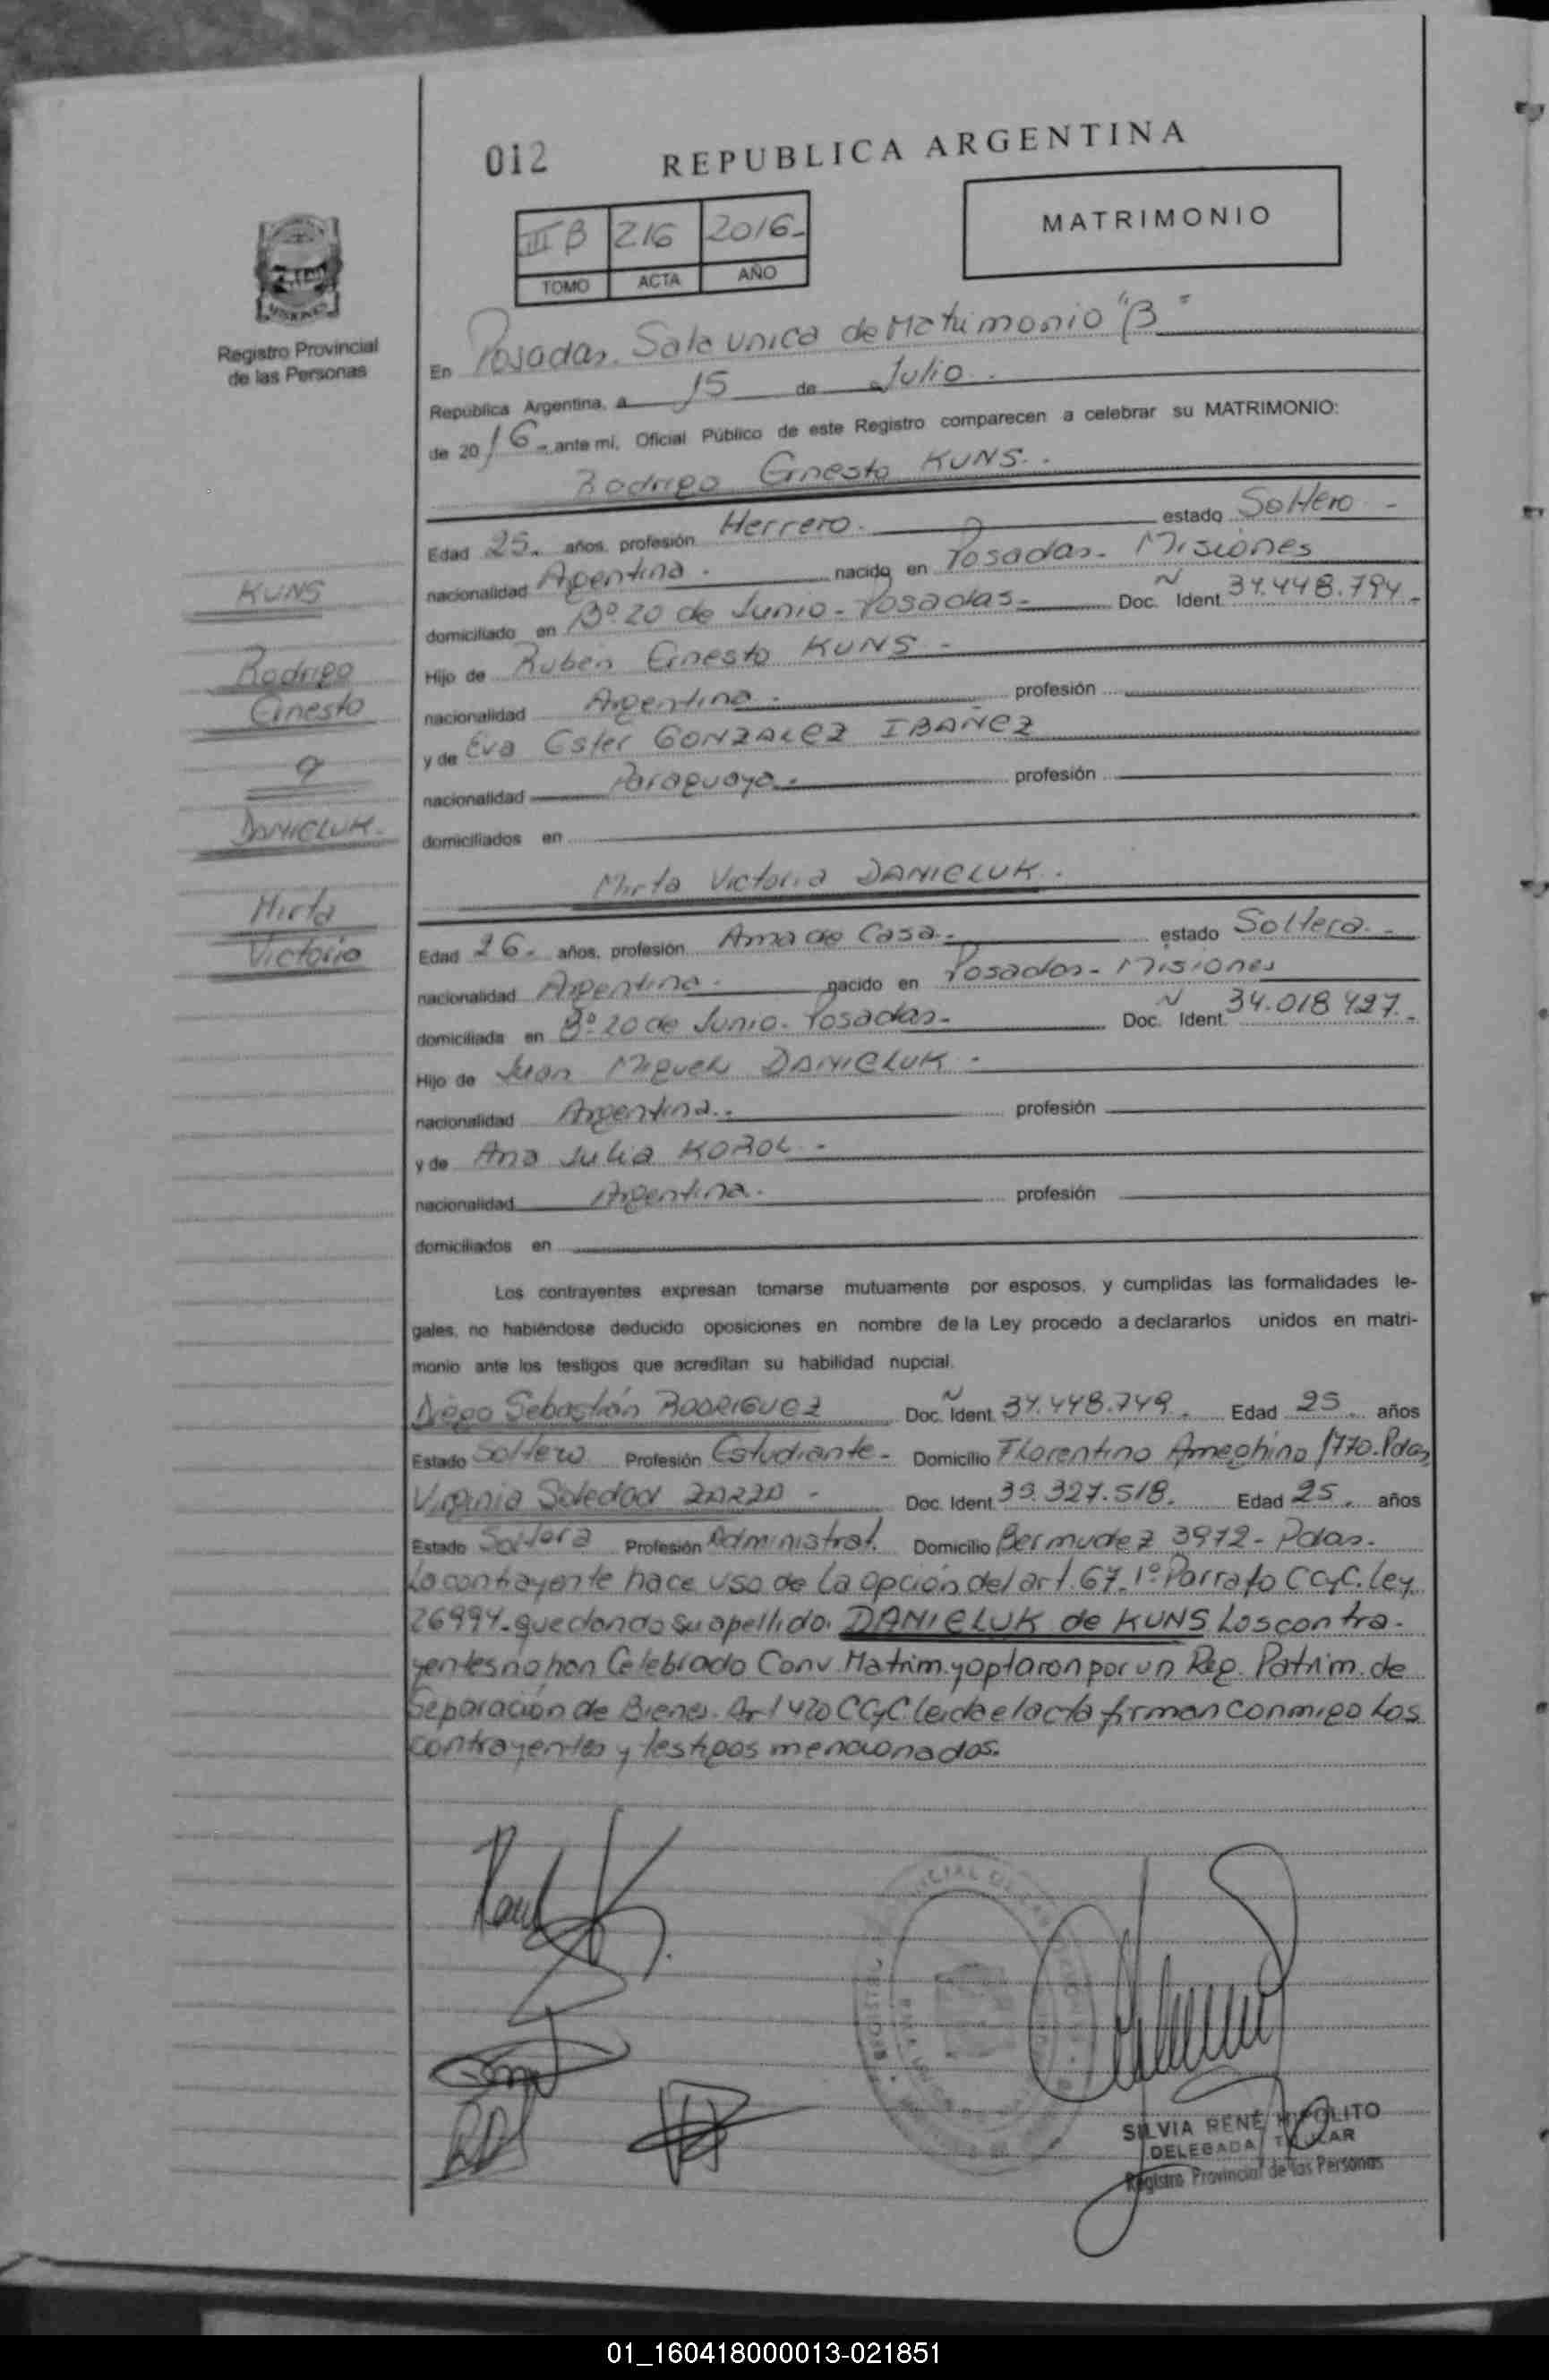 012
REPUBLICA ARGENTINA
III B 216 2016-
TOMO ACTA AÑO
MATRIMONIO
Registro Provincial
de las Personas
En Posadas. Sala unica de Matrimonio "B"
Republica Argentina, a 15 de Julio.
de 2016- ante mi, Oficial Público de este Registro comparecen a celebrar su MATRIMONIO:
Rodrigo Ernesto KUNS.
Edad 25. años, profesión Herrero. estado Soltero -
nacionalidad Argentina. nacido en Posadas- Misiones
domiciliado en Bº 20 de Junio- Posadas- Doc. Ident. 34.448.794-
Hijo de Ruben Ernesto KUNS -
nacionalidad Argentina. profesión
y de Eva Ester GONZALEZ IBAÑEZ
nacionalidad Paraguaya. profesión
domiciliados en
KUNS
Rodrigo
Ernesto
DANIELUK.
Mirta
Victoria
Mirta Victoria DANIELUK.
Edad 26- años, profesión Ama de Casa- estado Soltera.-
nacionalidad Argentina. nacido en Posadas- Misiones
domiciliada en Bº 20 de Junio- Posadas- Doc. Ident. 34.018.427.-
Hijo de Juan Miguel DANIELUK -
nacionalidad Argentina.. profesión
y de Ana Julia KOROL -
nacionalidad Argentina. profesión
domiciliados en
Los contrayentes expresan tomarse mutuamente por esposos, y cumplidas las formalidades le-
gales, no habiéndose deducido oposiciones en nombre de la Ley procedo a declararlos unidos en matri-
monio ante los testigos que acreditan su habilidad nupcial.
Diego Sebastián RODRIGUEZ Doc. Ident. 34.448.749. Edad 25. años
Estado Soltero Profesión Estudiante- Domicilio Florentino Ameghino 1770. Pdas
Virginia Soledad ZARZA - Doc. Ident. 35.327.518. Edad 25. años
Estado Soltera Profesión Administrat. Domicilio Bermudez 3972- Pdas.
La contrayente hace uso de la opción del art. 67. 1º Parrafo CCyC. Ley
26994. quedando su apellido. DANIELUK de KUNS Los contra-
yentes no han Celebrado Conv. Matrim. y optaron por un Reg. Patrim. de
Separación de Bienes. Art 420 CCyC leida el acta firman conmigo los
contrayentes y testigos mencionados.
SILVIA RENÉ HIPOLITO
DELEGADA TITULAR
Registro Provincial de las Personas
01_160418000013-021851